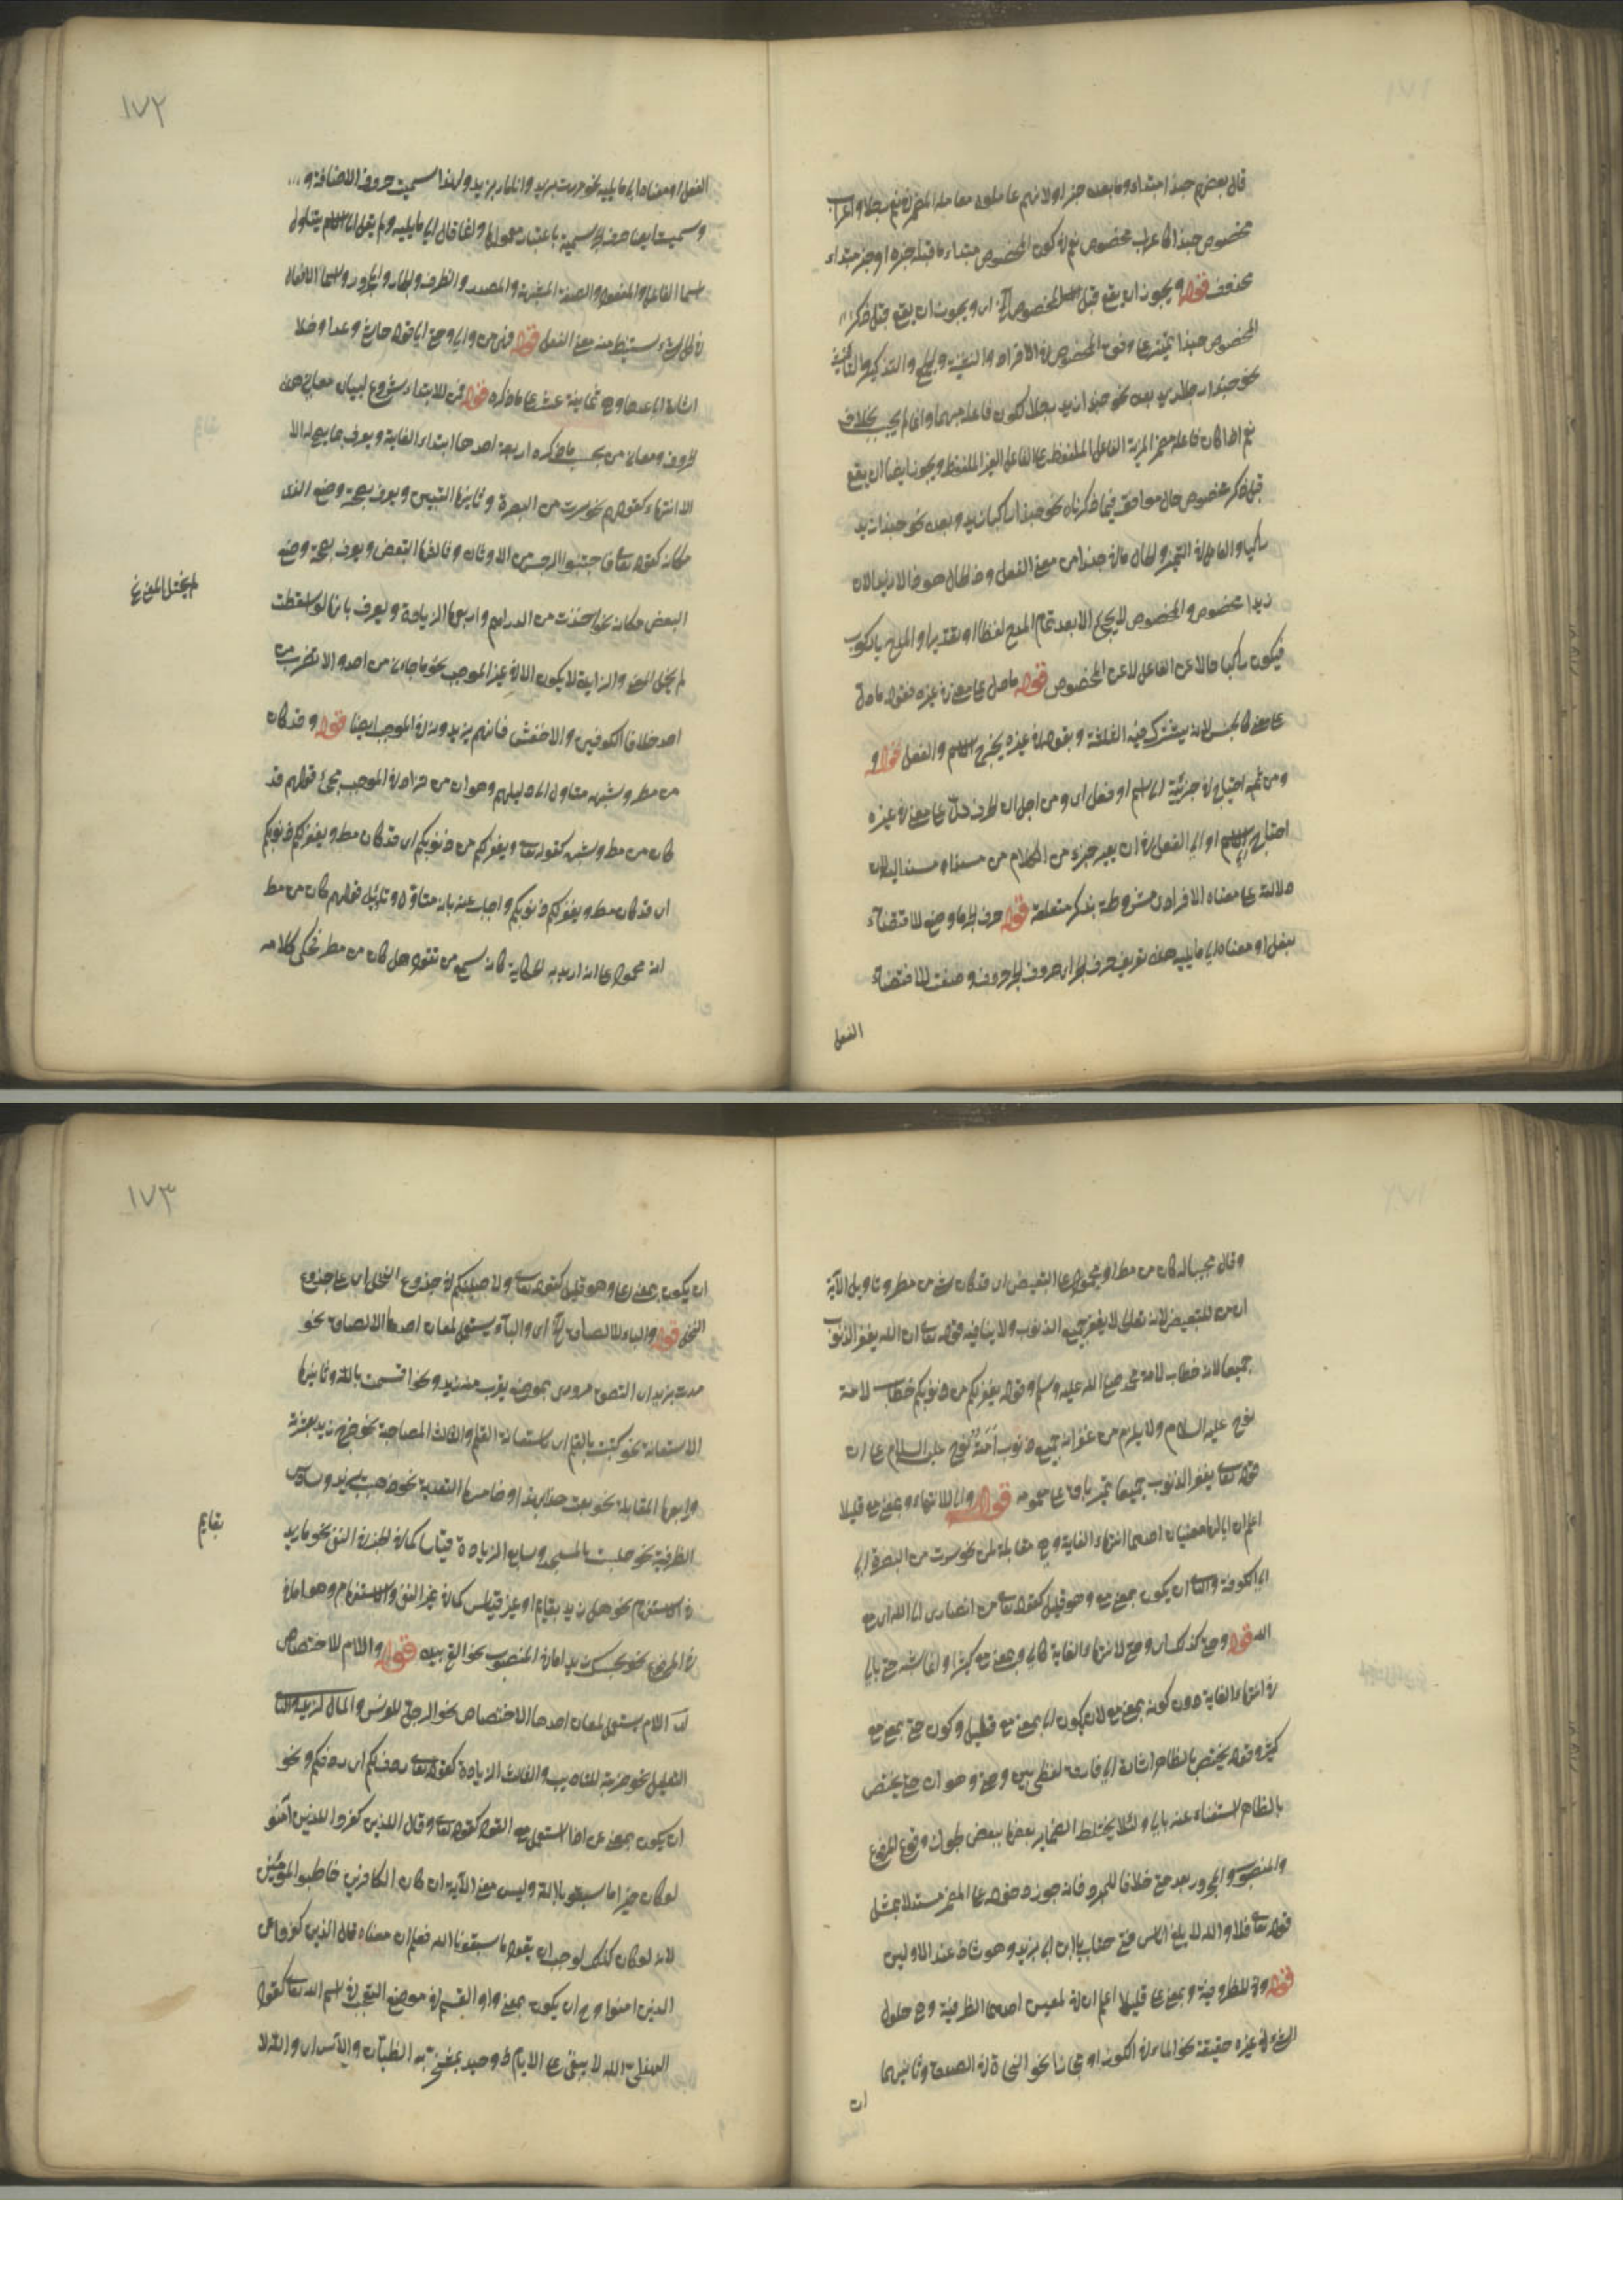 قال بعضهم حبذا مبتداء وما بعده خبراو لانهم عاملوه معاملة المضمر في نعم رجلا واعراب
مخصوص حبذا كاعراب مخصوص نعم في كون المخصوص مبتداء ما قبله خبره او خبر مبتداء
محذوف قوله ويجوز ان يقع قبل المخصوص آه اى ويجوز ان يقع قبل ذكر
المخصوص حبذا تمييز على وفق المخصوص في الافراد والتثنية والجمع والتذكير والتأنيث
نحو حبذا رجلا زيد بعده نحو حبذا زيد رجلا لكون فاعله مبهما وانما لم يجب بخلاف
نعم اذا كان فاعله مضمر المزية الفاعل الملفوظ على الفاعل الغير الملفوظ ويجوز ايضا ان يقع
قبل ذكر مخصوص حال موافق فيما ذكرناه نحو حبذا راكبا زيد وبعده نحو حبذا زيد
راكبا والعامل في التمييز والحال ما في حبذا من معنى الفعل وذو الحال هو ذا لا زيد لان
زيدا مخصوص والمخصوص لا يجيء الا بعد تمام المدح لفظا او تقديرا و المدح بالركوب
فيكون راكبا حالا عن الفاعل لا عن المخصوص قوله ما دل على معنى في غيره فقوله ما دل
على معنى كالجنس لانه يشترك فيه الثلاثة وبقوله في غيره يخرج الاسم والفعل قوله و
ومن ثمه احتياج في جزئيته الى اسم او فعل اى ومن اجل ان الحرف دل على معنى في غيره
احتاج الى اسم او الى الفعل في ان يصير جزء من الكلام من مسند او مسند اليه لان
دلالته على معناه الافرادى مشروطة بذكر متعلقه قوله حرف الجر ما وضع للافضاء
بفعل او معناه الى ما يليه هذه تعريف حرف الجر اى حروف الجر حروف وضعت للافضاء
الفعل
١٧٢
الفعل او معناه الى ما يليه نحو مررت بزيد وانا مار بزيد ولهذا سميت حروف الاضافة و
وسميت ايضا حرف الجر سمية باعتبار معمولها وانما قال الى ما يليه ولم يقل الى الاسم يتناول
اسما الفاعل والمفعول والصفة المشبهة والمصدر والظرف والجار والمجرور واسماء الافعال
لان كل شىء يستنبط منه معنى الفعل قوله فمن من والى وحتى الى قوله حاشا وعدا وخلا
اشارة الى عددها وهى ثمانية عشر على ما ذكره قوله فمن للابتداء شروع لبيان معانى هذه
الحروف ومعانى من بحسب ما ذكره اربعة احدها ابتداء الغاية ويعرف بما يصح له الا
الا انتهاء كقولهم نحو سرت من البصرة وثانيها التبيين ويعرف بصحة وضع الذى
مكانه كقوله تعالى فاجتنبوا الرجس من الاوثان وثالثها التبعيض ويعرف بصحة وضع
البعض مكانه نحو اخذت من الدراهم ورابعها الزيادة ويعرف بانها لو اسقطت
لم يخل المعنى والزايدة لا يكون الا في غير الموجب نحو ما جاءنى من احد ولا تضرب من
احد خلافا للكوفيين والاخفش فانهم يزيدون في الموجب ايضا قوله وقد كان
من مطر وشبهه متاول الى دليلهم وهو ان من تزاد في الموجب مجئ قولهم قد
كان من مطر وشبهه كقوله تعالى ويغفر لكم من ذنوبكم اى قد كان مطر ويغفر لكم ذنوبكم
اى قد كان مطر ويغفر لكم ذنوبكم واجاب عنه بانه متاول وتاويل قولهم كان من مطر
انه محمول على انه اريد به الحكاية كانه سمع من يقول هل كان من مطر فحكى كلامه
لم يختل المعنى
وقال مجيبا له كان من مطر او محمول على التبعيض اى قد كان شىء من مطر وتاويل الآية
ان من للتبعيض لانه تعالى لا يغفر جميع الذنوب ولا ينافيه قوله تعالى ان الله يغفر الذنوب
جميعا لانه خطاب لامة محمد صلى الله عليه وسلم وقوله يغفر لكم من ذنوبكم خطاب لامة
نوح عليه السلام ولا يلزم من غفرانه جميع ذنوب امة نوح عليه السلام على ان
قوله تعالى يغفر الذنوب جميعا غير باق على عمومه قوله والى للانتهاء وبمعنى مع قليلا
اعلم ان الى لها معنيان احدهما انتهاء الغاية وهى مقابلة لمن نحو سرت من البصرة الى
الى الكوفة والثانى ان يكون بمعنى مع وهو قليل كقوله تعالى من انصارى الى الله اى مع
الله قوله وحتى كذلك اى وحتى لانتهاء الغاية كالى وبمعنى مع كثيرا وانما شبه حتى بالى
في انتهاء الغاية دون كونه بمعنى مع لان كون الى بمعنى مع قليل وكون حتى بمعنى مع
كثير وقوله يختص بالظاهر اشارة الى فارق لفظى بين وحتى وهو ان حتى يختص
بالظاهر لاستغناء عنه بالى ولئلا يختلط الضماير بعضها ببعض بجواز وقوع المرفوع
والمنصوب والمجرور بعد حتى خلافا للمبرد فانه جوز دخوله على المضمر مستدلا بمثل
قوله تعالى فلا والله لا يلفى اناس فتى حتاك يا ابن ابى يزيد وهو شاذ عند الاولين
قوله وفي للظرفية وبمعنى على قليلا اعلم ان في لمعنيين احدهما الظرفية وهى حلول
الشىء في غيره حقيقة نحو الماء في الكوز او مجازا نحو النجاة في الصدق وثانيهما
ان
١٧٣
ان يكون بمعنى على وهو قليل كقوله تعالى ولاصلبنكم في جذوع النخل اى على جذوع
النخل قوله والباء للالصاق آه اى والباء يستعمل لمعان احدها الالصاق نحو
مررت بزيد اى التصق مرورى بموضع يقرب منه زيد ونحو اقسمت بالله وثانيها
الاستعانة نحو كتبت بالقلم اى باستعانة القلم والثالث المصاحبة نحو خرج زيد بعشرته
ورابعها المقابلة نحو بعت هذا بهذا وخامسها التعدية نحو ذهبت بزيد وسادس
الظرفية نحو جلست بالمسجد وسابع الزيادة قياسا كما في الخبر في النفى نحو ما زيد
في الاستفهام نحو هل زيد بقايم او غير قياس كما في غير النفى والاستفهام وهو اما في
في المرفوع نحو بحسبك زيد اما في المنصوب نحو القى بيده قوله واللام للاختصاص
آه اللام يستعمل لمعان احدها الاختصاص نحو الرجل للفرس والمال لزيد والثانى
التعليل نحو ضربته للتاديب والثالث الزيادة كقوله تعالى ردف لكم اى ردفكم ونحو
ان يكون بمعنى عن اذا استعمل مع القول كقوله تعالى وقال الذين كفروا للذين آمنو
لو كان خيرا ما سبقونا اليه وليس معنى الآية ان كان الكافرين خاطبوا المؤمنين
لانه لو كان كذلك لوجب ان يقول ما سبقونا اليه فعلم ان معناه قال الذين كفروا عن
الذين امنوا وهى ان يكون بمعنى واو القسم في موضع التعجب في اسم الله تعالى كقول
الهذلى لله لا يبقى على الايام ذو حيد بمشمخر به الظيان والآس اى والله لا
بقايم